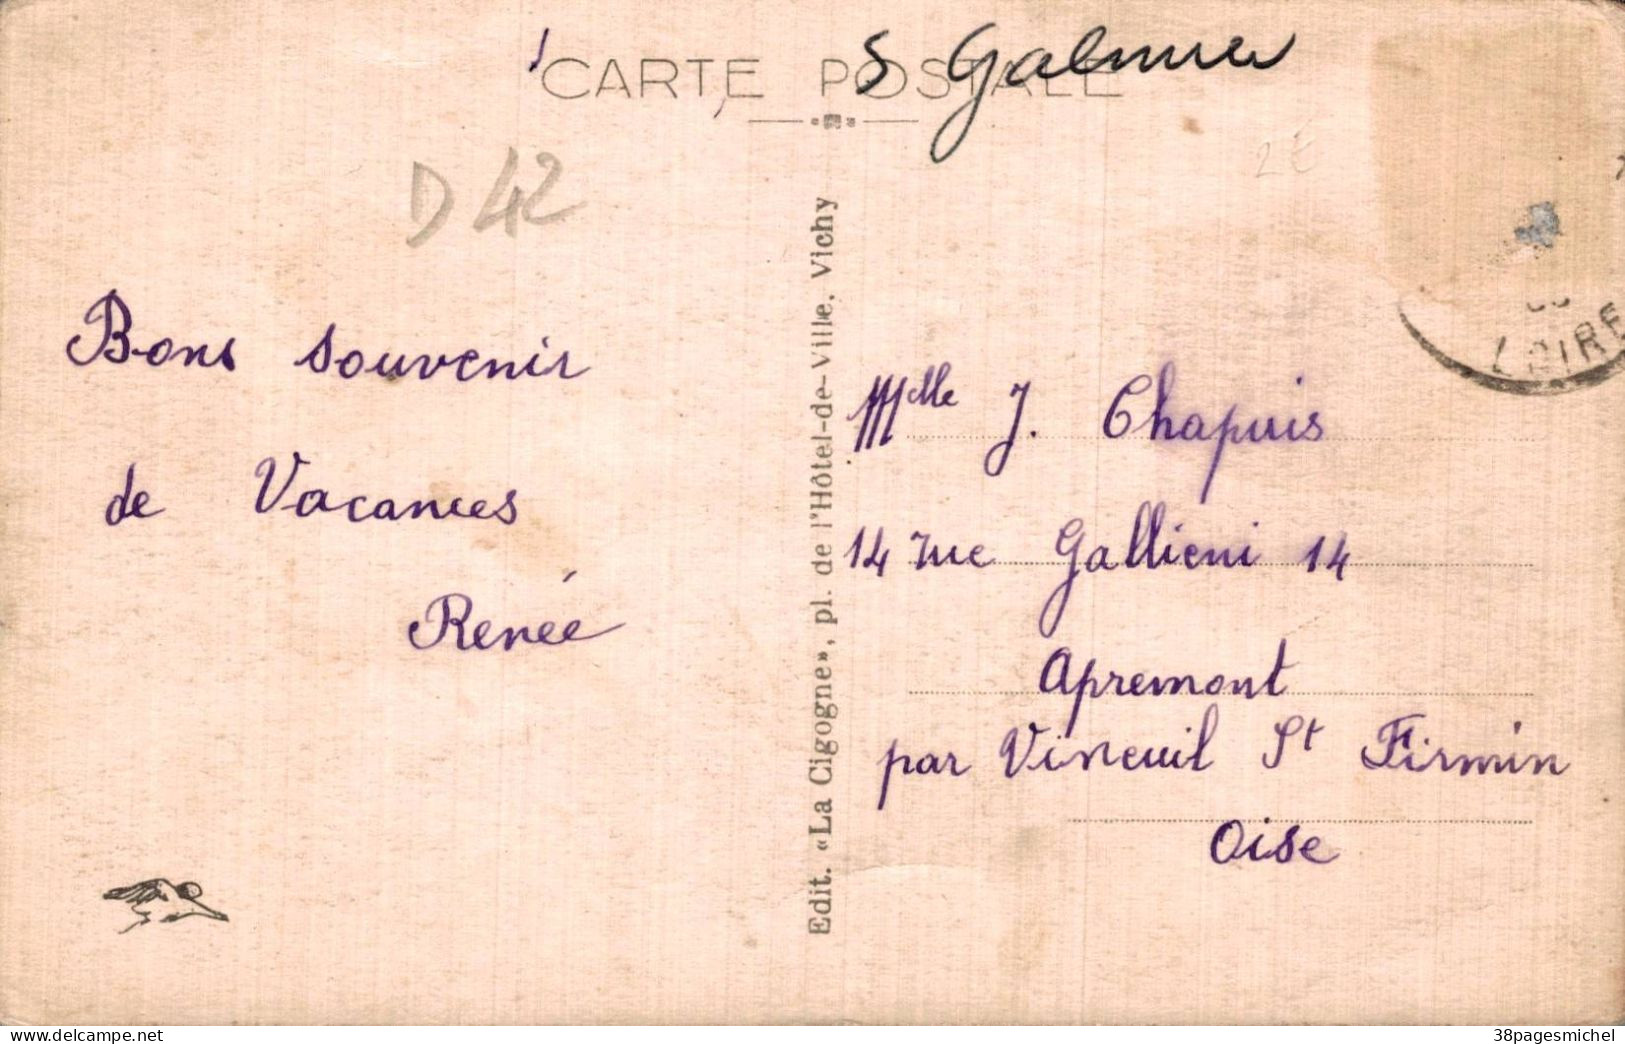 CARTE POSTALE
S Galmier
D 42
2€
Bons souvenir
de Vacances
Renée
Edit. «La Cigogne», pl. de l'Hôtel-de-Ville, Vichy
LOIRE
Melle J. Chapuis
14 rue Gallieni 14
Apremont
par Vineuil St Firmin
Oise
www.delcampe.net
38pagesmichel